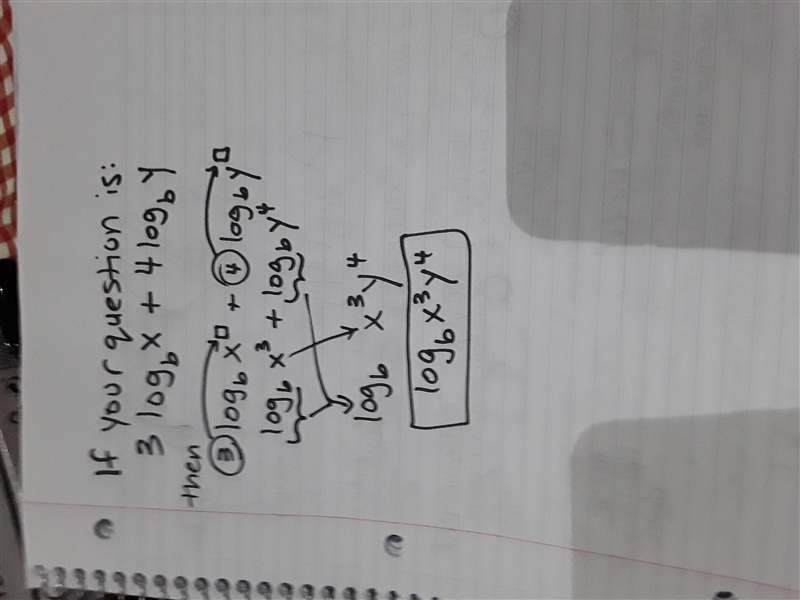 If your question is:
3 log_b x + 4 log_b y
then
③ log_b x^□ + ④ log_b y^□
log_b x³ + log_b y⁴
log_b x³ y⁴
log_b x³ y⁴